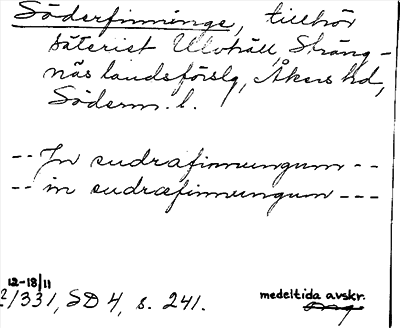 Söderfinninge, tillhör
säteriet Ulvhäll, Sträng-
näs landsförslg, Åkers hd,
Söderm. l.
-- Jn sudrafinnungum --
-- in sudræfinnungum ---
12-18/11
2/331, SD 4, s. 241.
medeltida avskr.